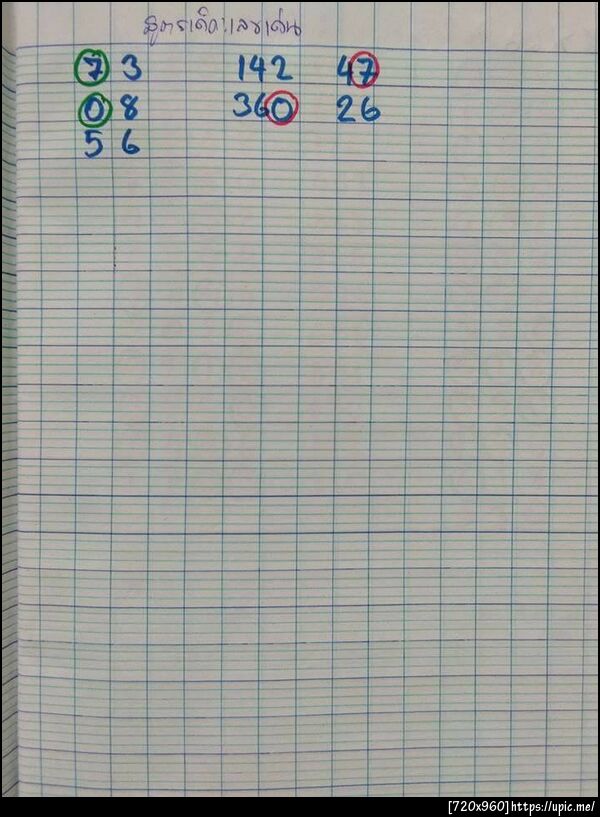 สูตรเด็ดเลขเด่น
7 3 142 47
0 8 360 26
5 6
[720x960]https://upic.me/